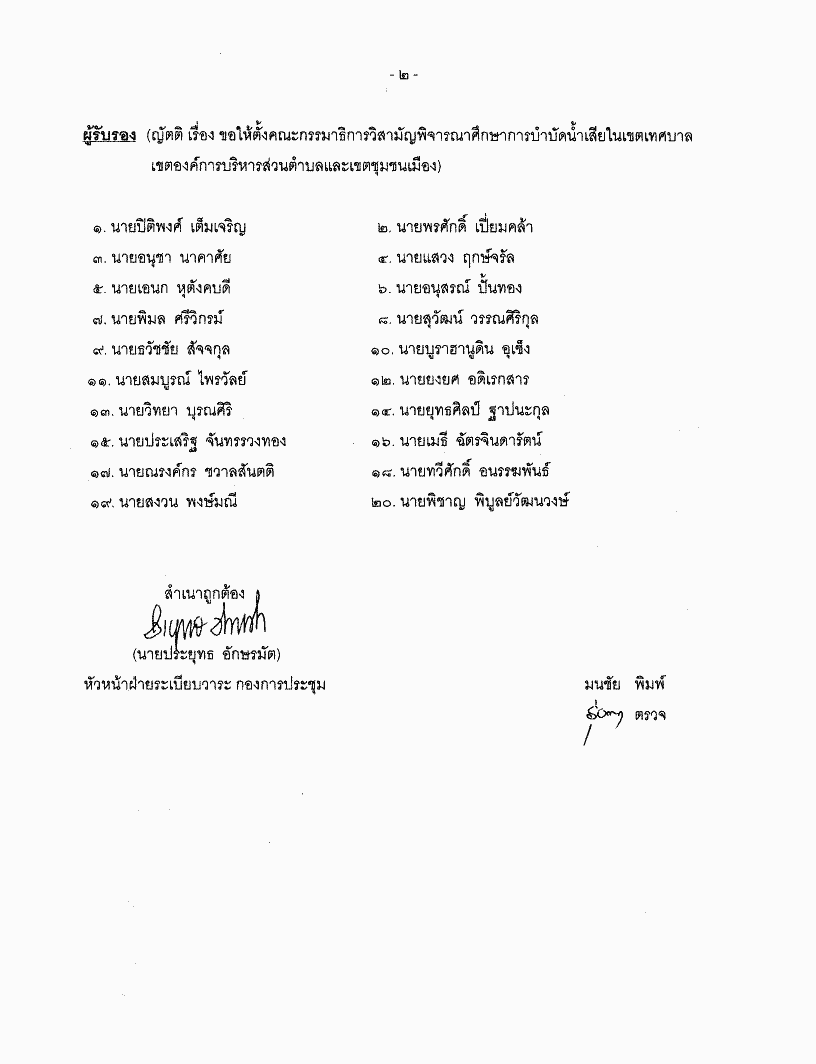 - ๒ -
ผู้รับรอง (ญัตติ เรื่อง ขอให้ตั้งคณะกรรมาธิการวิสามัญพิจารณาศึกษาการบำบัดน้ำเสียในเขตเทศบาล
เขตองค์การบริหารส่วนตำบลและเขตชุมชนเมือง)
๑. นายปิติพงศ์ เต็มเจริญ ๒. นายพรศักดิ์ เปี่ยมคล้า
๓. นายอนุชา นาคาศัย ๔. นายแสวง ฤกษ์จรัล
๕. นายเอนก หุตังคบดี ๖. นายอนุสรณ์ ปั้นทอง
๗. นายพิมล ศรีวิกรม์ ๘. นายสุวัฒน์ วรรณศิริกุล
๙. นายธวัชชัย สัจจกุล ๑๐. นายบูราฮานูดิน อุเซ็ง
๑๑. นายสมบูรณ์ ไพรวัลย์ ๑๒. นายยงยศ อดิเรกสาร
๑๓. นายวิทยา บุรณศิริ ๑๔. นายยุทธศิลป์ ฐาปนะกุล
๑๕. นายประเสริฐ จันทรรวงทอง ๑๖. นายเมธี ฉัตรจินดารัตน์
๑๗. นายณรงค์กร ชวาลสันตติ ๑๘. นายทวีศักดิ์ อนรรฆพันธ์
๑๙. นายสงวน พงษ์มณี ๒๐. นายพิชาญ พิบูลย์วัฒนวงษ์
สำเนาถูกต้อง
(นายประยุทธ อักษรมัต)
หัวหน้าฝ่ายระเบียบวาระ กองการประชุม
มนชัย พิมพ์
ตรวจ